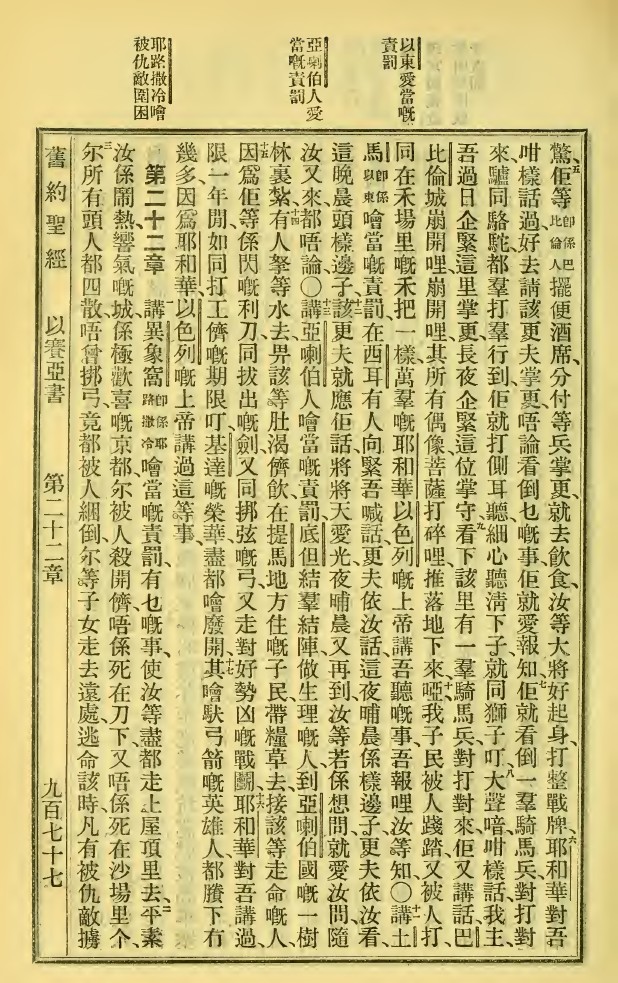 以東愛當嘅
責罰
亞喇伯人愛
當嘅責罰
耶路撒冷噲
被仇敵圍困
驚佢等即係巴比倫人擺便酒席、分付等兵掌更、就去飲食、汝等大將好起身、打整戰牌、六耶和華對吾
咁樣話過、好去請該更夫掌更、唔論看倒乜嘅事、佢就愛報知、七佢就看倒一羣騎馬兵、對打對
來、驢同駱駝都羣打羣行到、佢就打側耳聽、細心聽淸下子、就同獅子叮大聲喑咁樣話、我主、
吾過日企緊這里掌更、長夜企緊這位掌守、九看下該里有一羣騎馬兵、對打對來、佢又講話、巴
比倫城崩開哩、崩開哩、其所有偶像菩薩打碎哩、推落地下來、十啞、我子民被人踐踏、又被人打、
同在禾場里嘅禾把一樣、萬羣嘅耶和華、以色列嘅上帝講吾聽嘅事、吾報哩汝等知、〇十一講土
馬即係以東噲當嘅責罰、在西耳有人向緊吾喊話、更夫依汝話、這夜晡晨係樣邊子、更夫依汝看、
這晚晨頭樣邊子、十二該更夫就應佢話、將將天愛光、夜晡晨又再到、汝等若係想問、就愛汝問、隨
汝又來、都唔論、〇十三講亞喇伯人噲當嘅責罰、底但結羣結陣做生理嘅人、到亞喇伯國嘅一樹
林裏紮、十四有人拏等水去畀該等肚渴儕飮、在提馬地方住嘅子民、帶糧草去、接該等走命嘅人、
十五因爲佢等係閃嘅利刀、同拔出嘅劍、又同挷弦嘅弓、又走對好勢凶嘅戰鬭、十六耶和華對吾講過、
限一年閒、如同打工儕嘅期限叮、基達嘅榮華、盡都噲廢開、十七其噲馱弓箭嘅英雄人、都賸下冇
幾多、因爲耶和華、以色列嘅上帝、講過這等事、
第二十二章 一講異象窩即係耶路撒冷噲當嘅責罰、有乜嘅事、使汝等盡都走上屋頂里去、二平素
汝係鬧熱、響氣嘅城、係極歡喜嘅京都、尔被人殺開儕、唔係死在刀下、又唔係死在沙場里个、
三尔所有頭人都四散、唔曾挷弓、竟都被人綑倒、尔等子女走去遠處逃命、該時凡有被仇敵擄
舊約聖經 以賽亞書 第二十二章 九百七十七